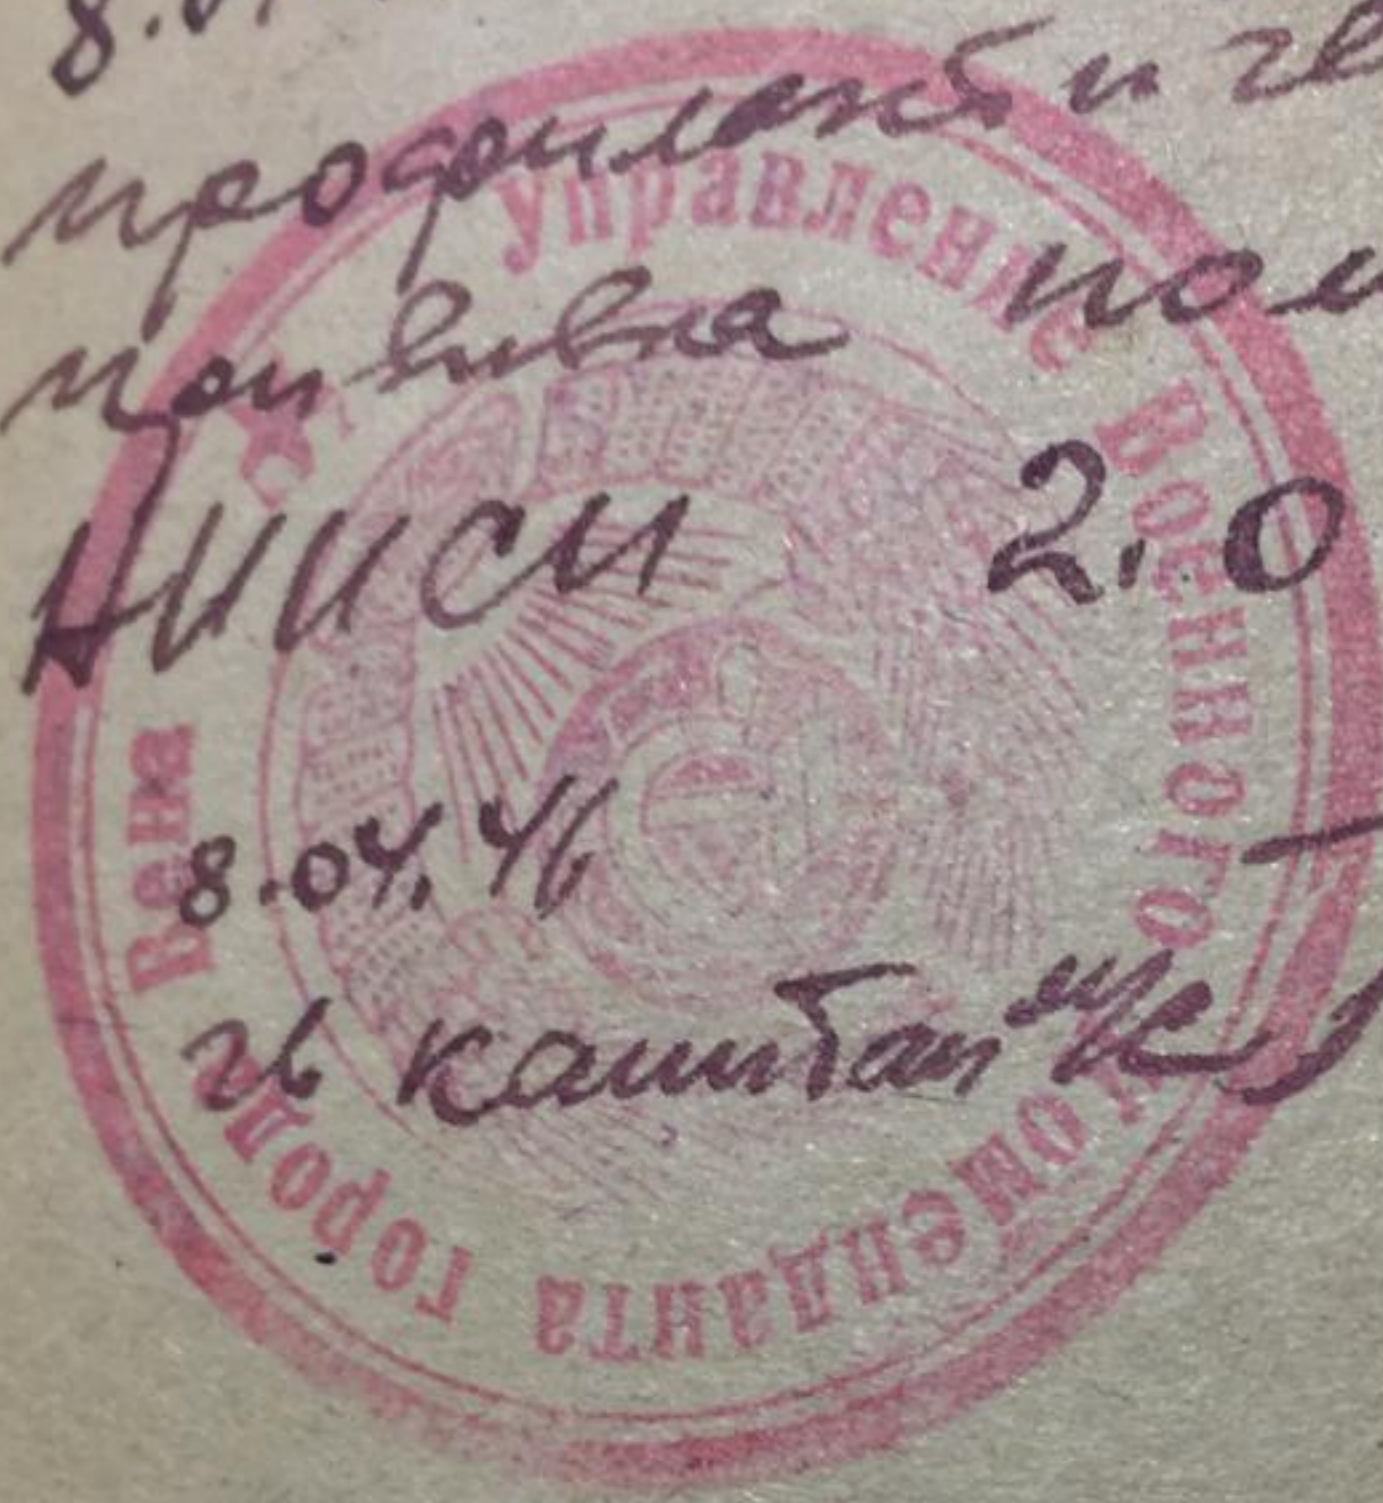 8.0
прививка пол
НИИСИ 2.0
8.04.46
гв капитан
Управление Военного Коменданта города Вена